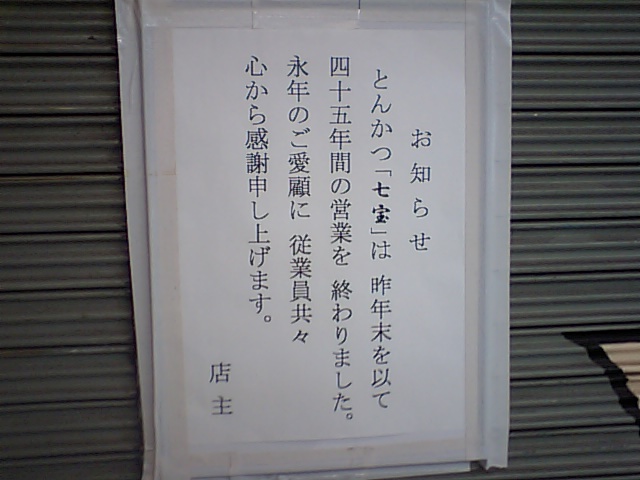 お知らせ
とんかつ「七宝」は 昨年末を以て
四十五年間の営業を 終わりました。
永年のご愛顧に 従業員共々
心から感謝申し上げます。
店主